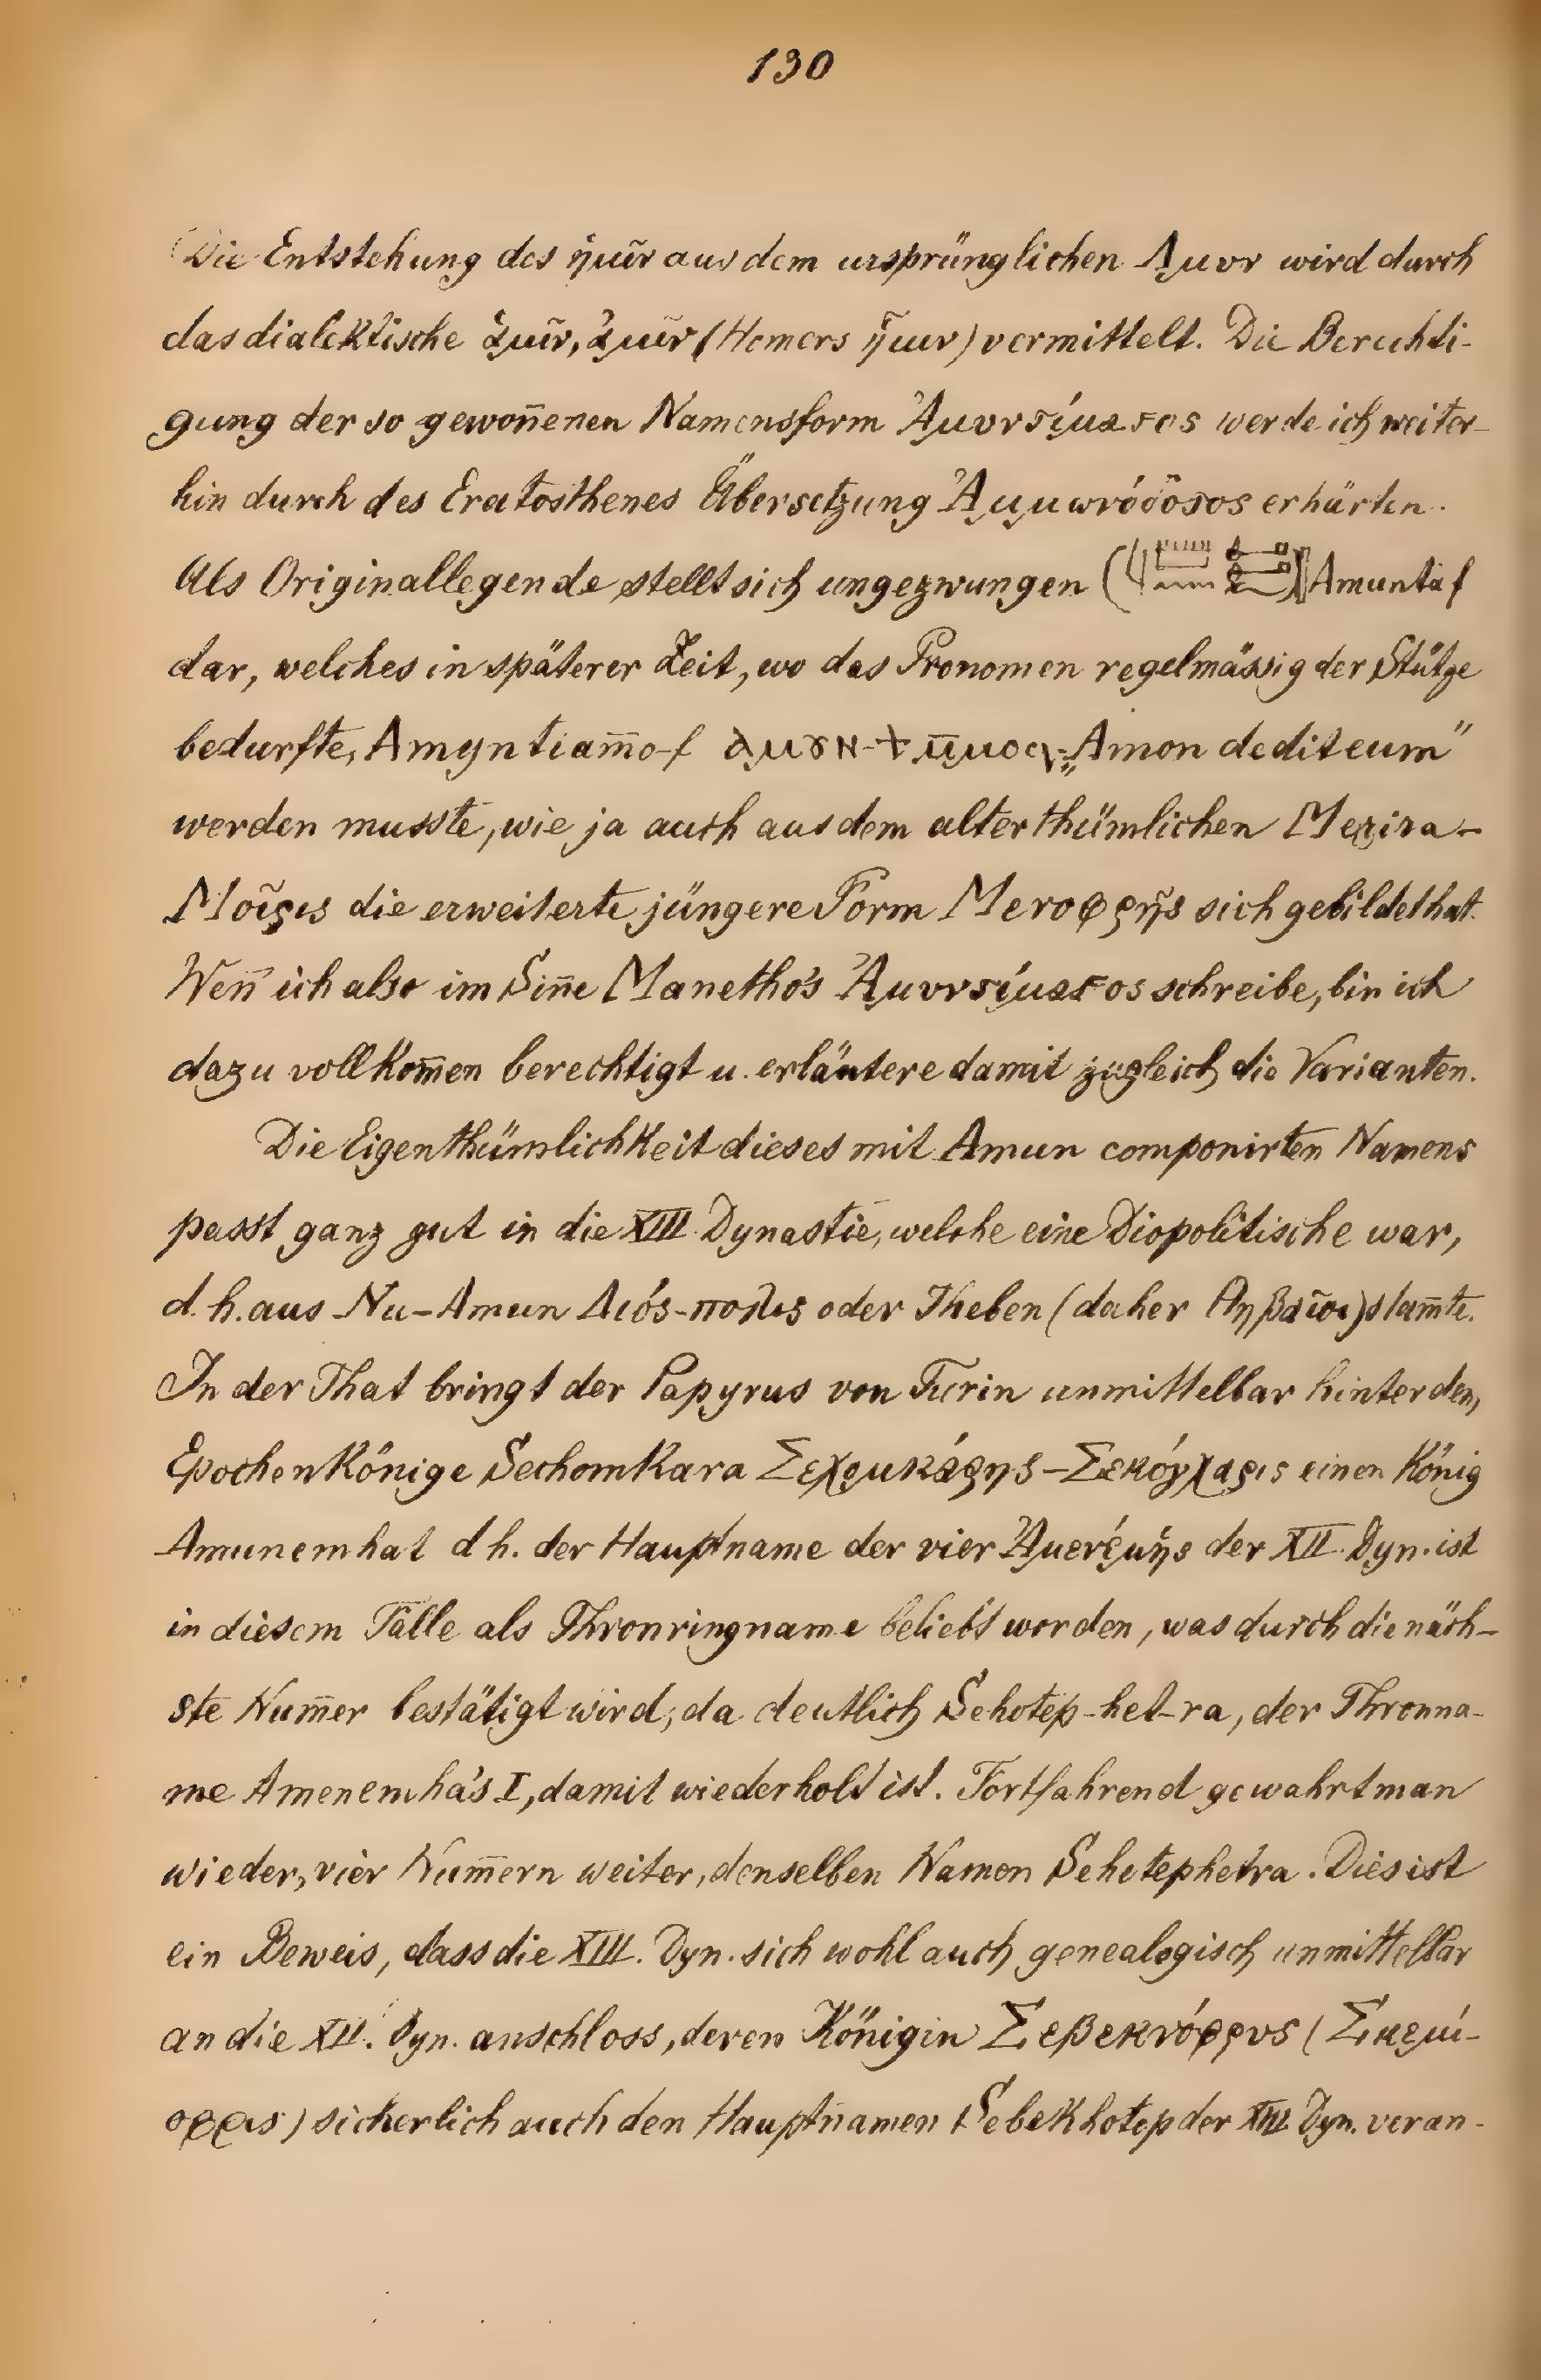 130
Die Entstehung des ἡμῖν aus dem ursprünglichen Ἀμυν wird durch
das dialektische ἁμῖν, ἀμῖν (Homers ἧμιν) vermittelt. Die Berechti-
gung der so gewon̄enen Namensform Ἀμυντίμαιος werde ich weiter-
hin durch des Eratosthenes Übersetzung Ἀμμωνόδοτος erhärten.
Als Originallegende stellt sich ungezwungen Amuntäf
dar, welches in späterer Zeit, wo das Pronomen regelmässig der Stütze
bedurfte, Amyntiam̄o-f ⲁⲙⲟⲩⲛ-ϯ ⲙ̄ⲙⲟϥ „Amon dedit eum"
werden musste, wie ja auch aus dem alterthümlichen Merira-
Μοῖρις die erweiterte jüngere Form Μενοφρῆς sich gebildet hat.
Wen̄ ich also im Sin̄e Manetho's schreibe, bin ich
dazu vollkom̄en berechtigt u. erläutere damit zugleich die Varianten.
Die Eigenthümlichkeit dieses mit Amun componirten Namens
passt ganz gut in die XIII. Dynastie, welche eine Diopolitische war,
d. h. aus Nu-Amun Διός-πολις oder Theben (daher Θηβαῖοι) stam̄te.
In der That bringt der Papyrus von Turin unmittelbar hinter dem
Epochenkönige Sechomkara Σεχεμκάρης-Σεκόγχαρις einen König
Amunemhat d h. der Hauptname der vier Ἀμενέμης der XII. Dyn. ist
in diesem Falle als Thronringname beliebt worden, was durch die näch-
ste Num̄er bestätigt wird, da deutlich Sehotep-het-ra, der Thronna-
me Amenemha's I, damit wiederholt ist. Fortfahrend gewahrt man
wieder, vier Num̄ern weiter, denselben Namen Sehetephetra. Dies ist
ein Beweis, dass die XIII. Dyn. sich wohl auch genealogisch unmittelbar
an die XII. Dyn. anschloss, deren Königin Σεβεκνόφρυς (Σκεμί-
οφρις) sicherlich auch den Hauptnamen Sebekhotep der XIII Dyn. veran-